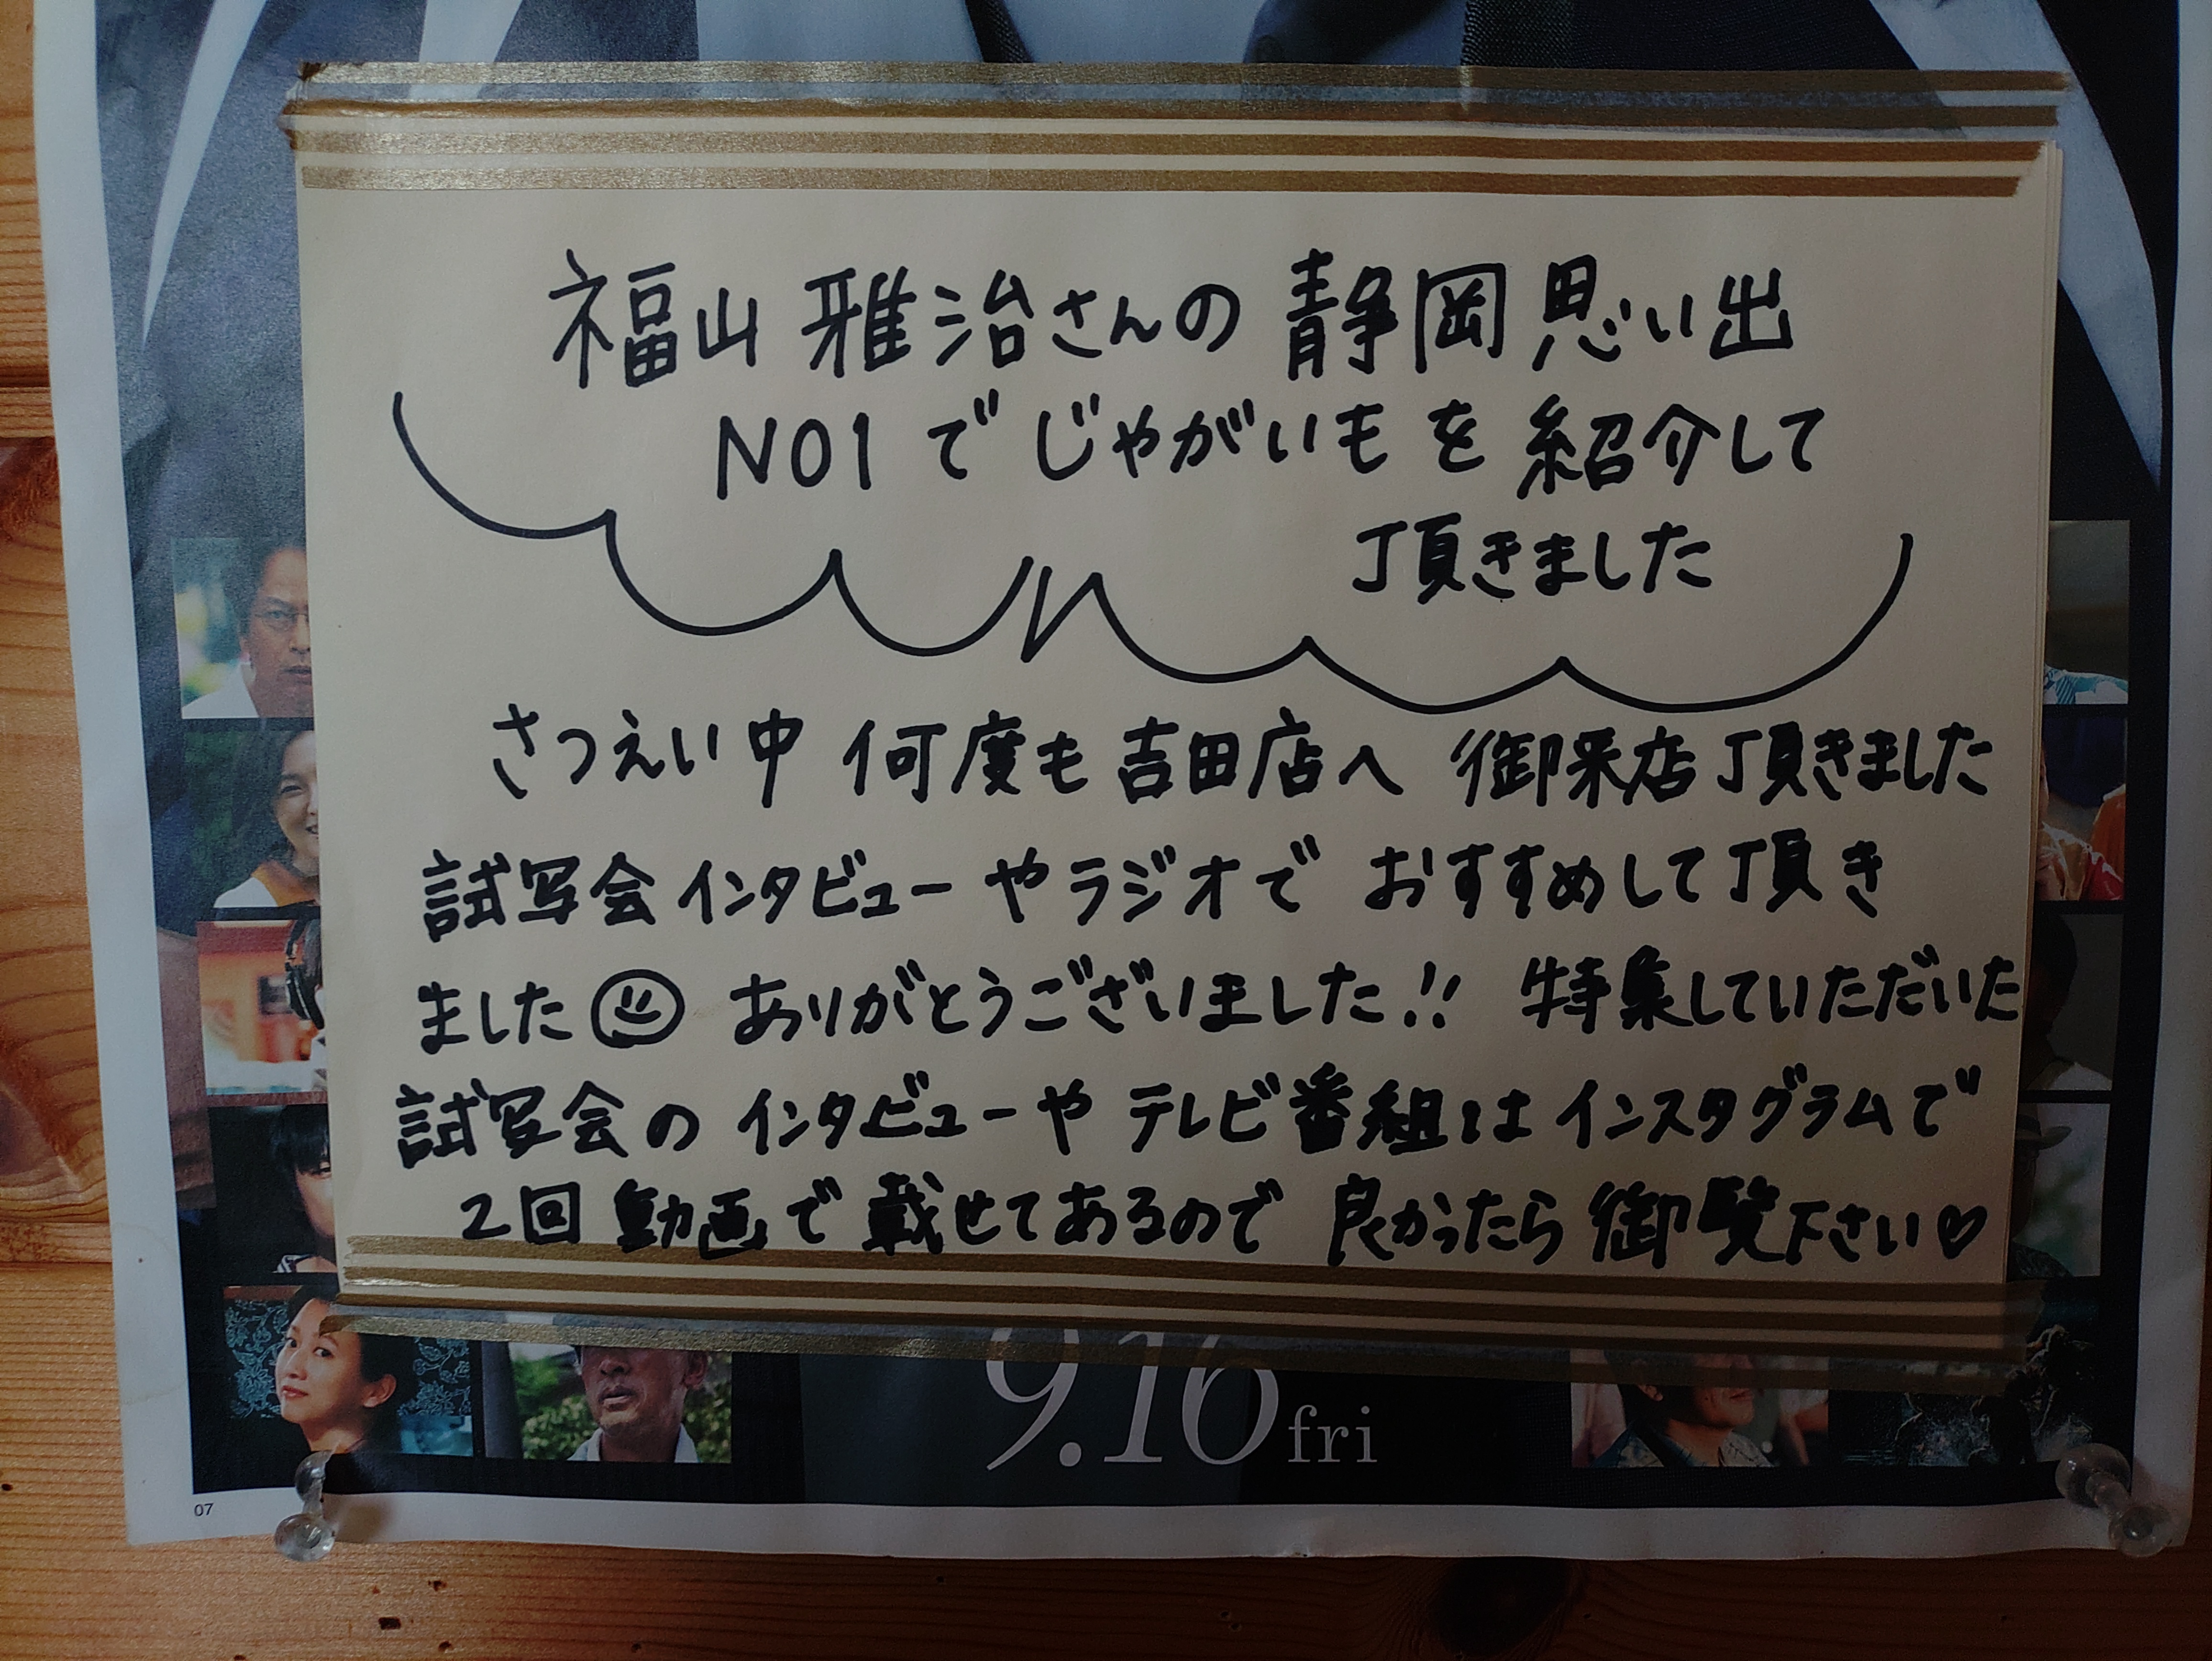 福山雅治さんの静岡思い出
NO1でじゃがいもを紹介して
頂きました
さつえい中 何度も吉田店へ 御来店頂きました
試写会インタビューやラジオで おすすめして頂き
ました ありがとうございました!! 特集していただいた
試写会の インタビューや テレビ番組は インスタグラムで
2回 動画で載せてあるので 良かったら御覧下さい♡
9.16 fri
07